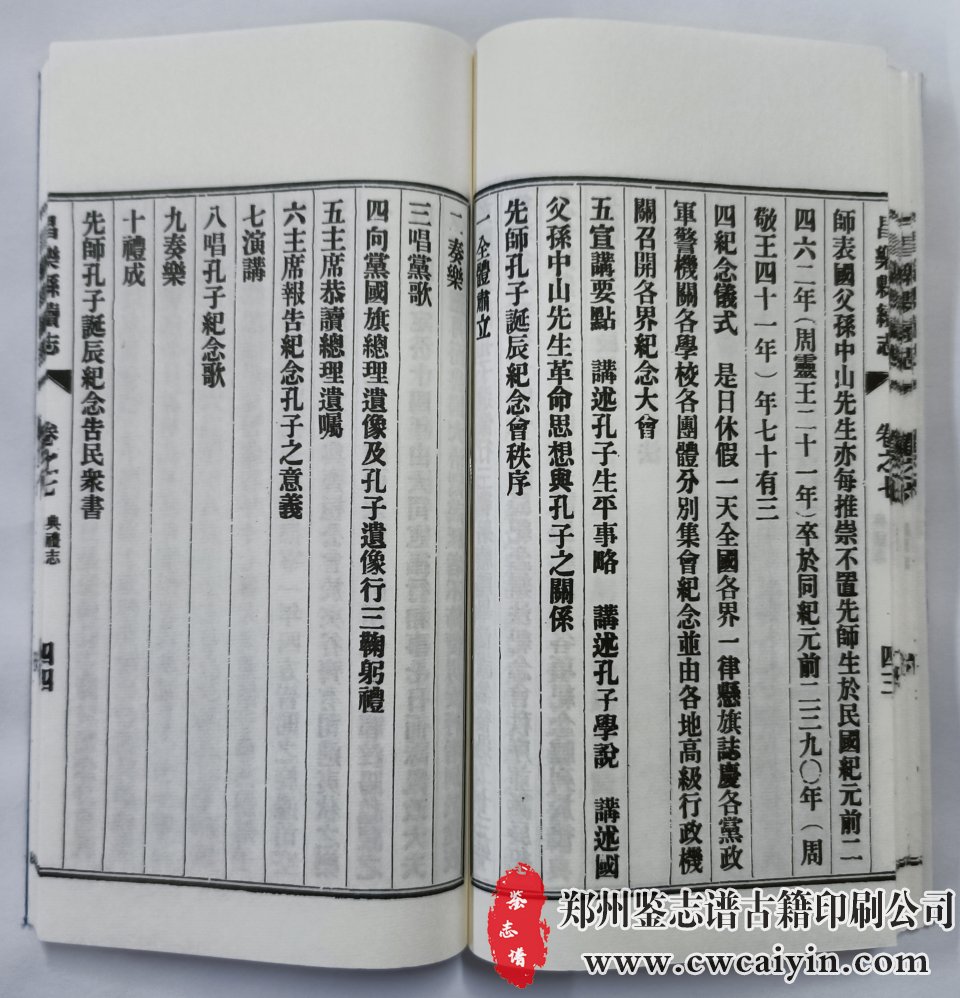 師表國父孫中山先生亦每推崇不置先師生於民國紀元前二
四六二年(周靈王二十一年)卒於同紀元前二三九〇年(周
敬王四十一年)年七十有三
四紀念儀式　是日休假一天全國各界一律懸旗誌慶各黨政
軍警機關各學校各團體分別集會紀念並由各地高級行政機
關召開各界紀念大會
五宣講要點　講述孔子生平事略　講述孔子學說　講述國
父孫中山先生革命思想與孔子之關係
先師孔子誕辰紀念會秩序
一全體肅立
二奏樂
三唱黨歌
四向黨國旗總理遺像及孔子遺像行三鞠躬禮
五主席恭讀總理遺囑
六主席報告紀念孔子之意義
七演講
八唱孔子紀念歌
九奏樂
十禮成
先師孔子誕辰紀念告民衆書
昌樂縣續志　卷之七　典禮志　四四
昌樂縣續志　卷之七　四三
鉴志谱
郑州鉴志谱古籍印刷公司
www.cwcaiyin.com